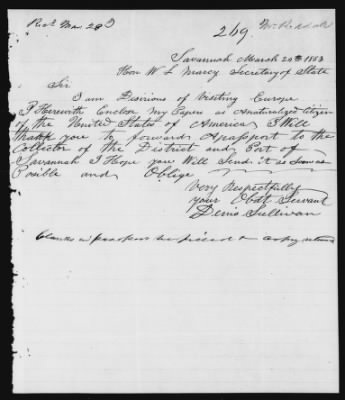 Recd Mar 28
269.
Savannah March 20th 1853
Hon W L Marcy Secretary of State
Sir
I am Desirious of Visiting Europe
I Herewith Enclose My Papers as Anaturalized Citizen
of the United States of America I Will
thank you to forward Apassport to the
Collector of the District and Port of
Savannah I Hope you Will Send it as Soon as
Posible and Oblige
Very Respectfully
your Obdt Servant
Denis Sullivan
in passport